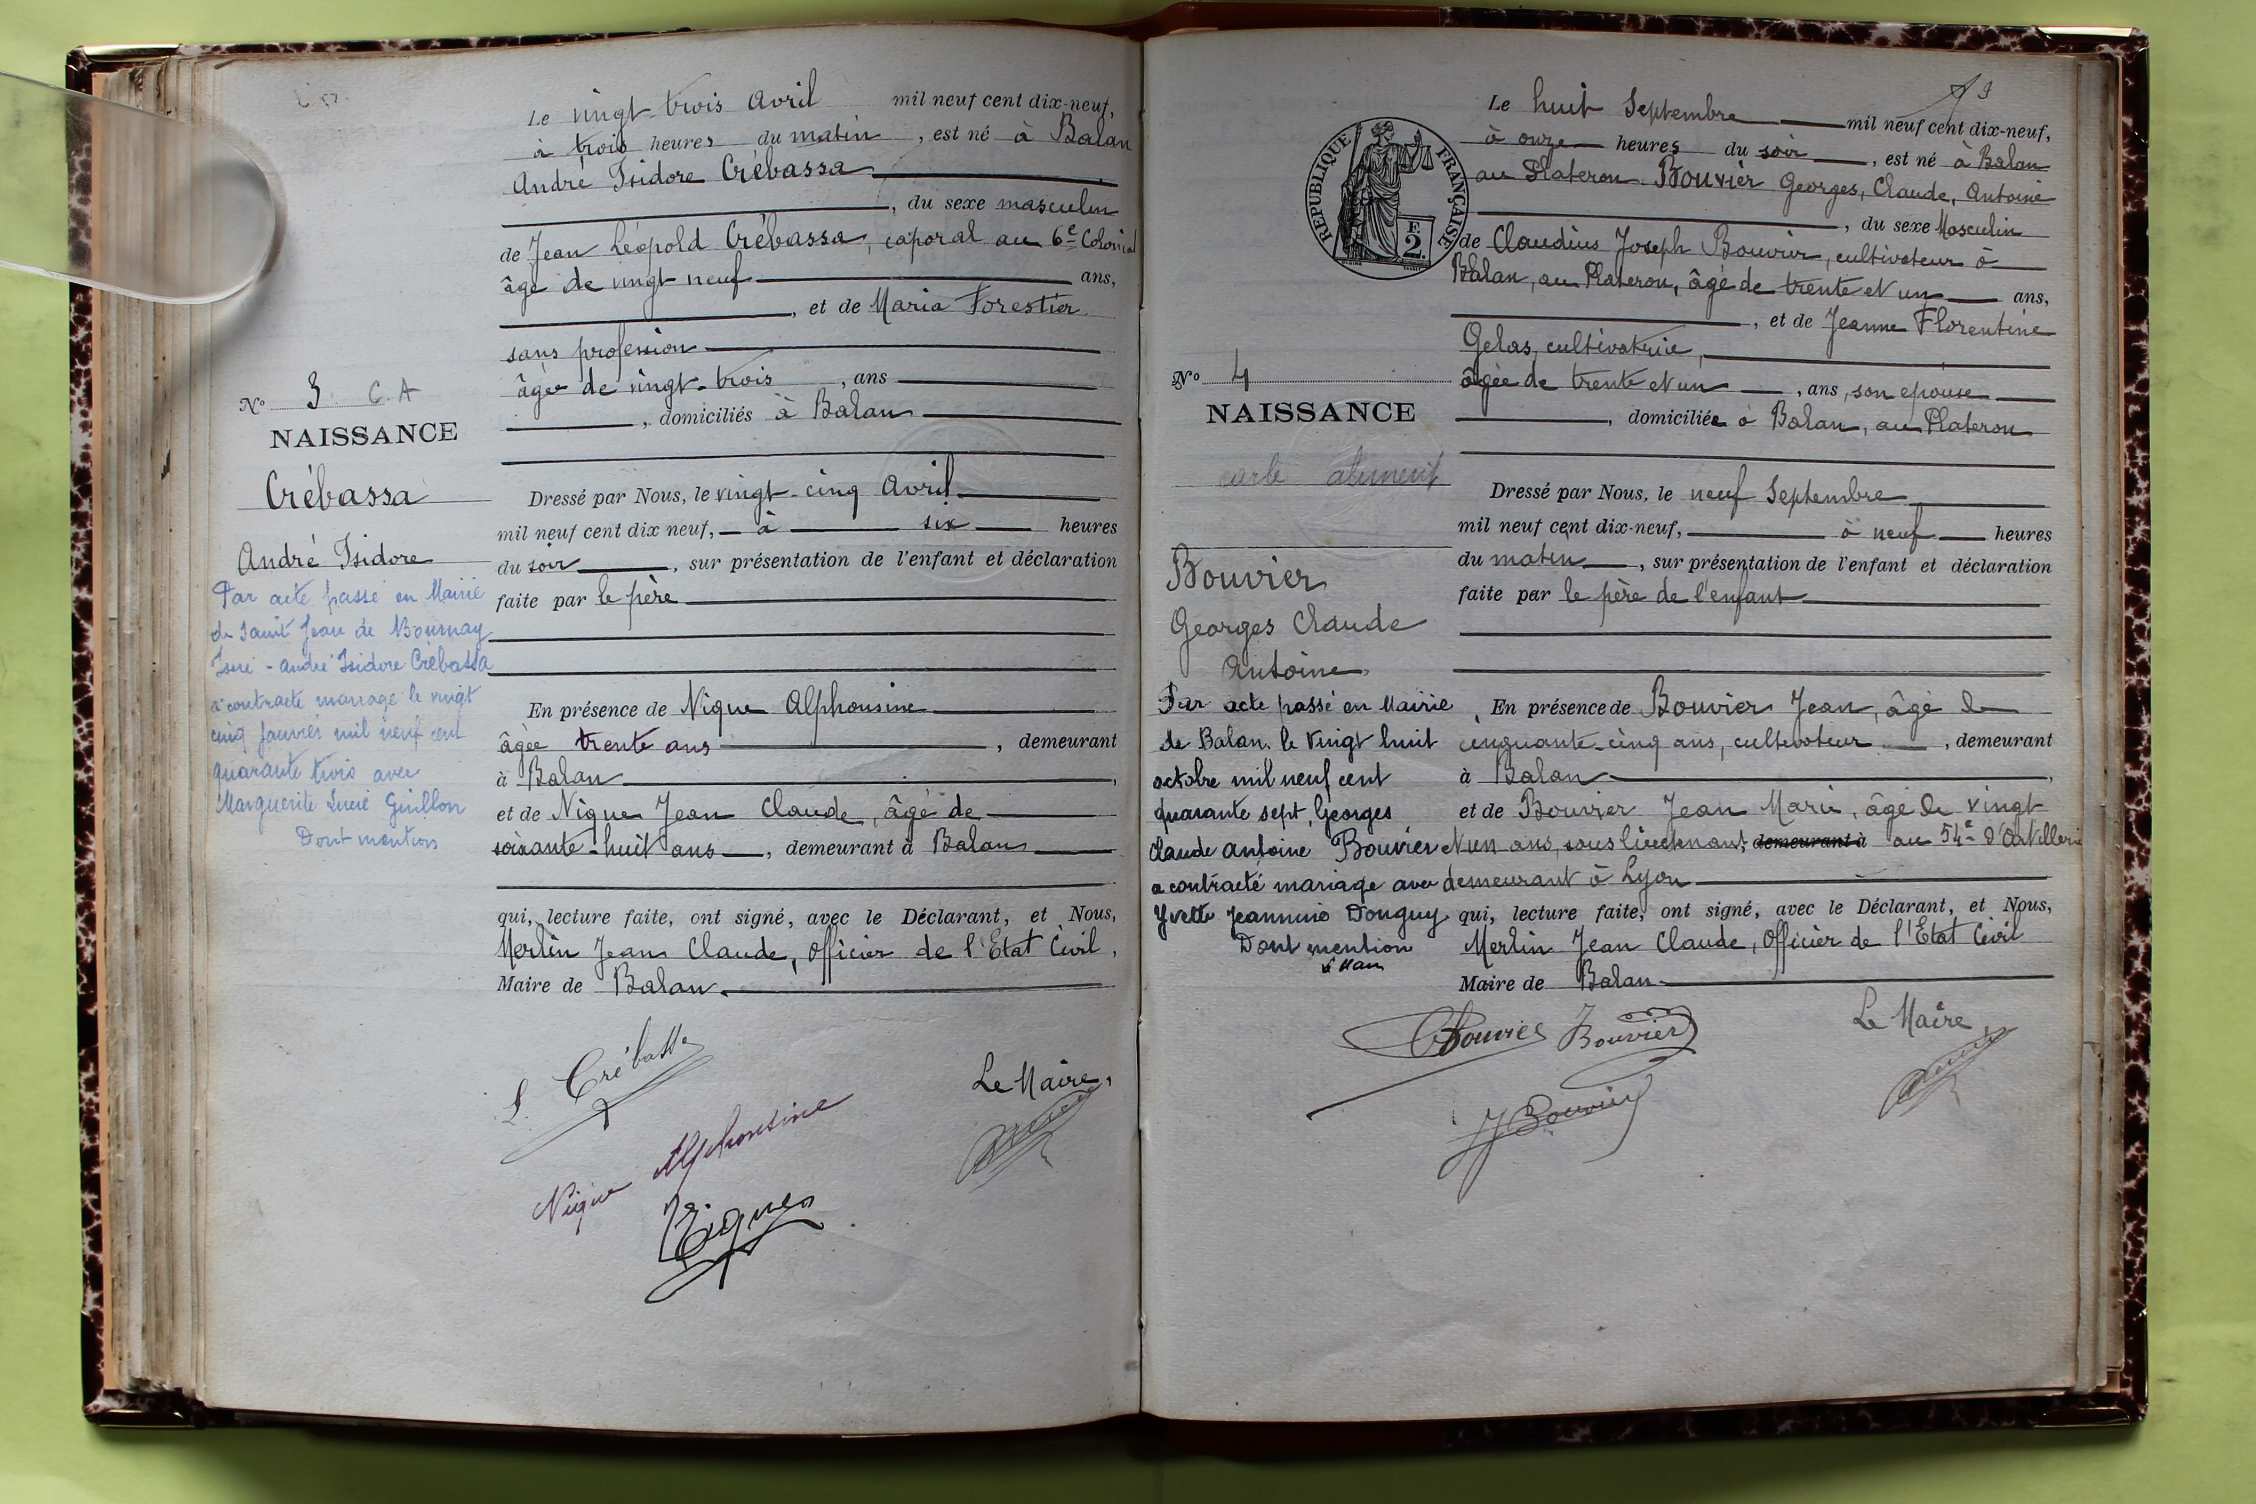 Le vingt-trois Avril mil neuf cent dix-neuf,
à trois heures du matin, est né à Balan
André Isidore Crébassa
, du sexe masculin
de Jean Léopold Crébassa, caporal au 6e Colonial
âgé de vingt neuf ans,
, et de Maria Forestier
sans profession
âgée de vingt-trois, ans
, domiciliés à Balan
No 3 C. A
NAISSANCE
Crébassa
André Isidore
Par acte passé en Mairie
de Saint Jean de Bournay
Isère - André Isidore Crébassa
a contracté mariage le vingt
cinq Janvier mil neuf cent
quarante trois avec
Marguerite Lucie Guillon
Dont mention
Dressé par Nous, le vingt-cinq Avril
mil neuf cent dix neuf, à six heures
du soir, sur présentation de l'enfant et déclaration
faite par le père
En présence de Nique Alphonsine
âgée trente ans, demeurant
à Balan,
et de Nique Jean Claude, âgé de
soixante-huit ans, demeurant à Balan
qui, lecture faite, ont signé, avec le Déclarant, et Nous,
Merlin Jean Claude, Officier de l'Etat Civil,
Maire de Balan
L. Crébassa
Le Maire,
Nique Alphonsine
Le huit Septembre mil neuf cent dix-neuf,
à onze heures du soir, est né à Balan
au Plateron Bouvier Georges, Claude, Antoine
, du sexe Masculin
de Claudius Joseph Bouvier, cultivateur à
Balan, au Plateron, âgé de trente et un ans,
, et de Jeanne Florentine
Gelas, cultivatrice,
âgée de trente et un, ans, son épouse
, domiciliée à Balan, au Plateron
RÉPUBLIQUE FRANÇAISE
2 F.
No 4
NAISSANCE
Bouvier
Georges Claude
Antoine
Par acte passé en Mairie
de Balan, le vingt huit
octobre mil neuf cent
quarante sept, Georges
Claude Antoine Bouvier
a contracté mariage avec
Yvette Jeannine Donguy
Dont mention
Dressé par Nous, le neuf Septembre
mil neuf cent dix-neuf, à neuf heures
du matin, sur présentation de l'enfant et déclaration
faite par le père de l'enfant
En présence de Bouvier Jean, âgé de
cinquante-cinq ans, cultivateur, demeurant
à Balan,
et de Bouvier Jean Marie, âgé de vingt
et un ans, sous lieutenant, demeurant à au 54e d'Artillerie
demeurant à Lyon
qui, lecture faite, ont signé, avec le Déclarant, et Nous,
Merlin Jean Claude, Officier de l'Etat Civil
Maire de Balan
C Bouvier J Bouvier
Le Maire
JJ Bouvier